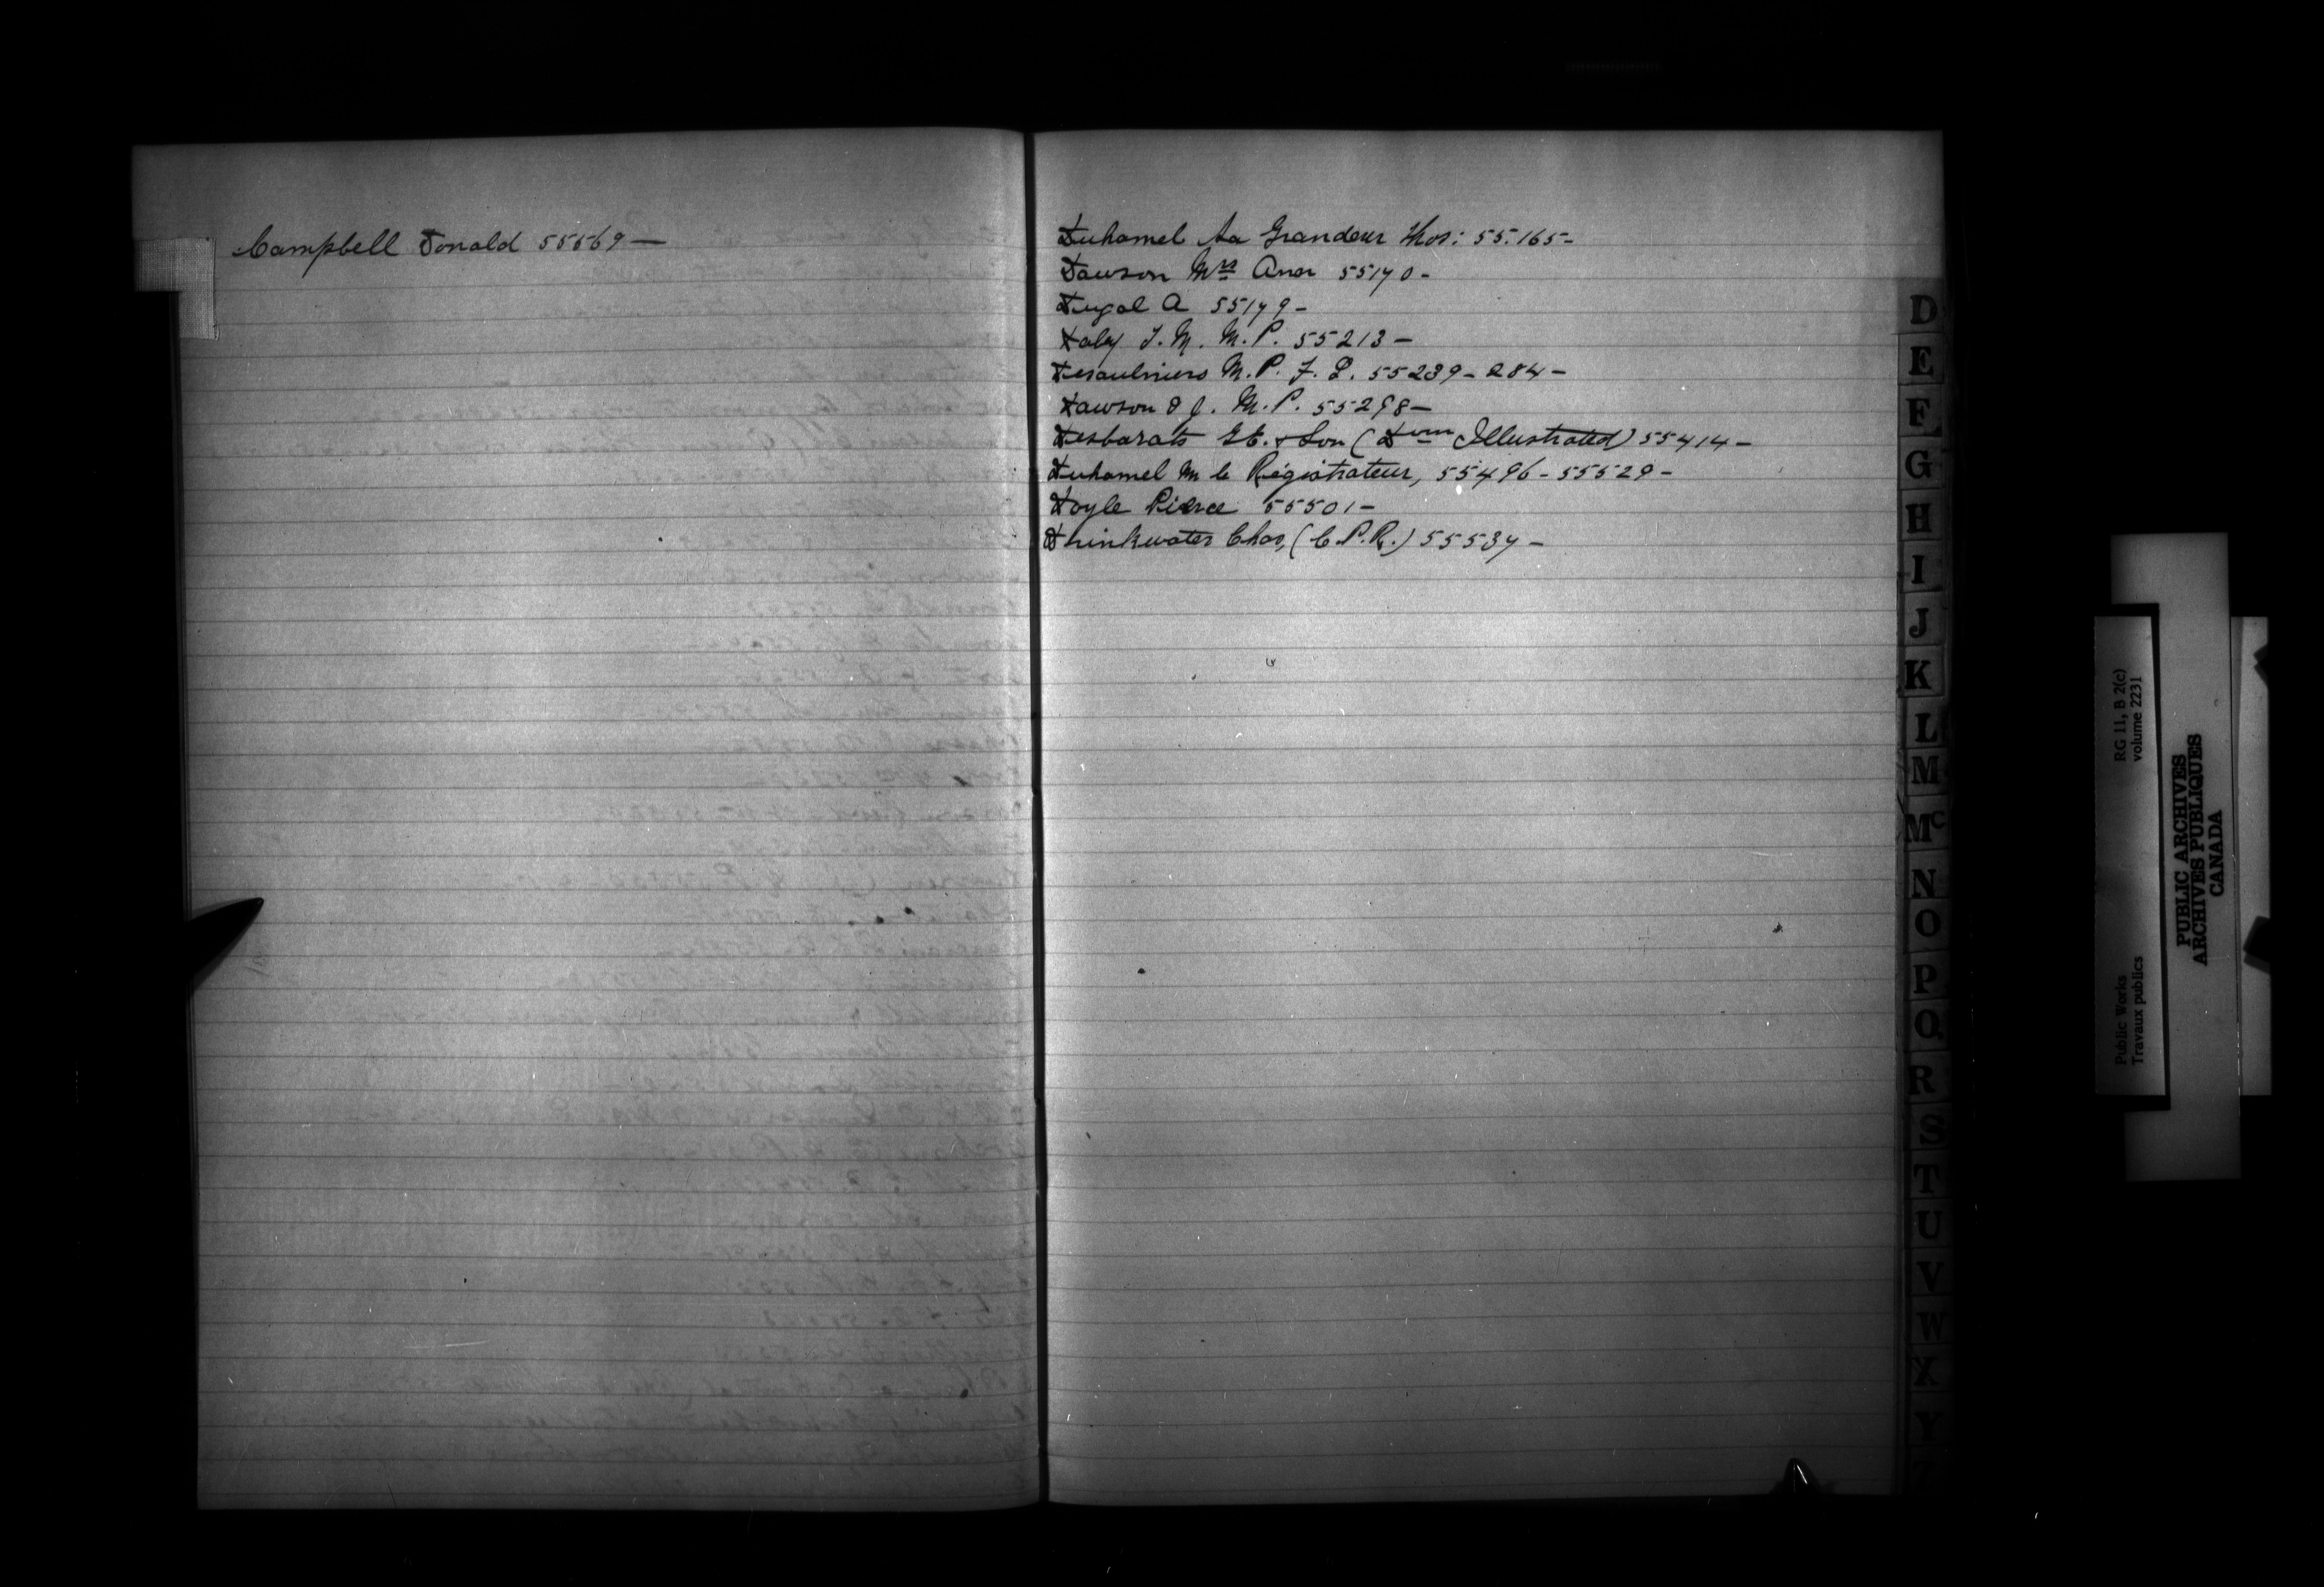 Campbell Donald 55569—
Duhamel Sa Grandeur Thos: 55.165-
Dawson Mrs Ann 55170-
Dugal A 55179-
Daly T. M. M.P. 55213—
Desaulniers M.P. F. L. 55239-284-
Dawson S J. M.P. 55298—
Desbarats GE. & Son (Dom Illustrated) 55414-
Duhamel M le Régistrateur, 55496-55529-
Doyle Pierce 55501-
Drinkwater Chas, (C.P.R.) 55537-
D
E
F
G
H
I
J
K
L
M
Mc
N
O
P
Q
R
S
T
U
V
W
X
Y
Z
RG 11, B 2(c)
volume 2231
Public Works
Travaux publics
PUBLIC ARCHIVES
ARCHIVES PUBLIQUES
CANADA